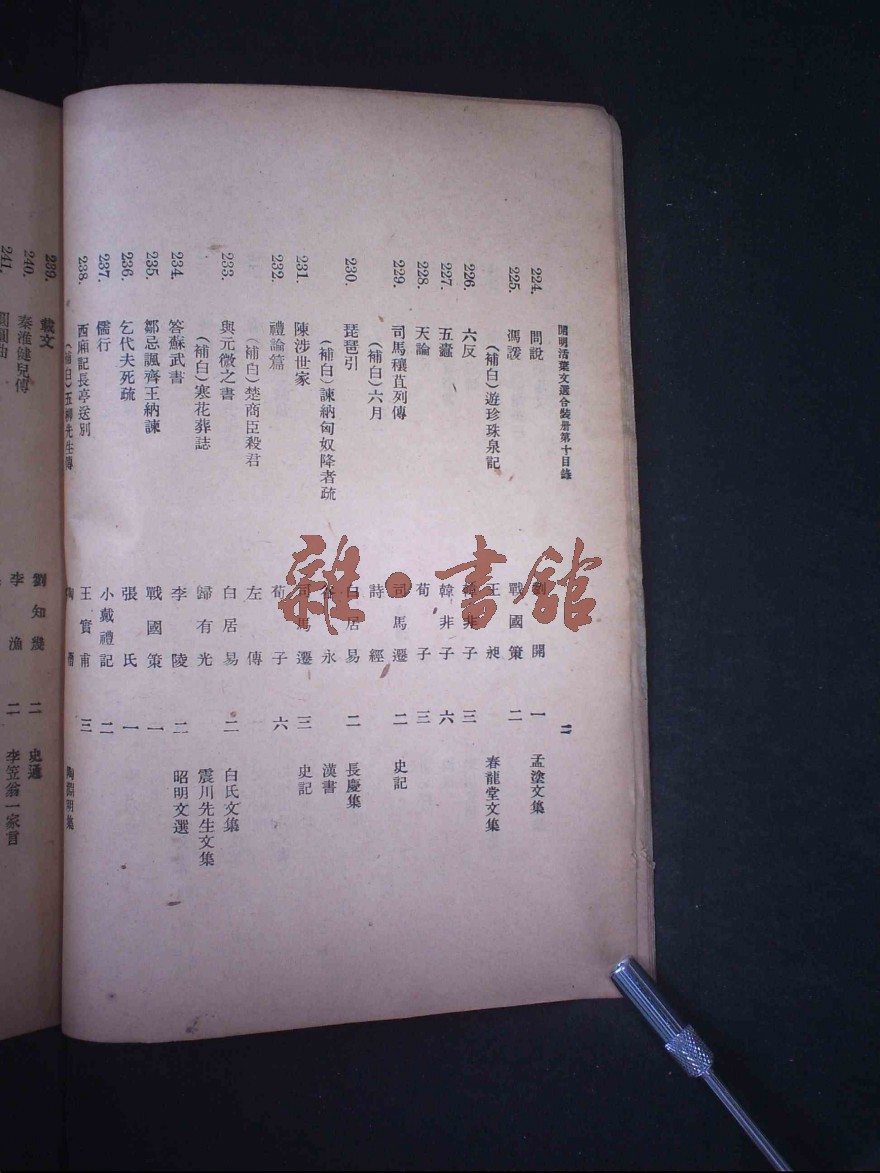 開明活葉文選合裝册第十目錄 二
224. 問說 劉開 一 孟塗文集
225. 馮諼 戰國策 二
(補白)遊珍珠泉記 王昶 春龍堂文集
226. 六反 韓非子 三
227. 五蠹 韓非子 六
228. 天論 荀子 三
229. 司馬穰苴列傳 司馬遷 二 史記
(補白)六月 詩經
230. 琵琶引 白居易 二 長慶集
(補白)諫納匈奴降者疏 谷永 漢書
231. 陳涉世家 司馬遷 三 史記
232. 禮論篇 荀子 六
(補白)楚商臣殺君 左傳
233. 與元微之書 白居易 二 白氏文集
(補白)寒花葬誌 歸有光 震川先生文集
234. 答蘇武書 李陵 二 昭明文選
235. 鄒忌諷齊王納諫 戰國策 一
236. 乞代夫死疏 張氏 一
237. 儒行 小戴禮記 二
238. 西廂記長亭送別 王實甫 三
(補白)五柳先生傳 陶潛 陶淵明集
239. 載文 劉知幾 二 史通
240. 秦淮健兒傳 李漁 二 李笠翁一家言
241.
雜·書館